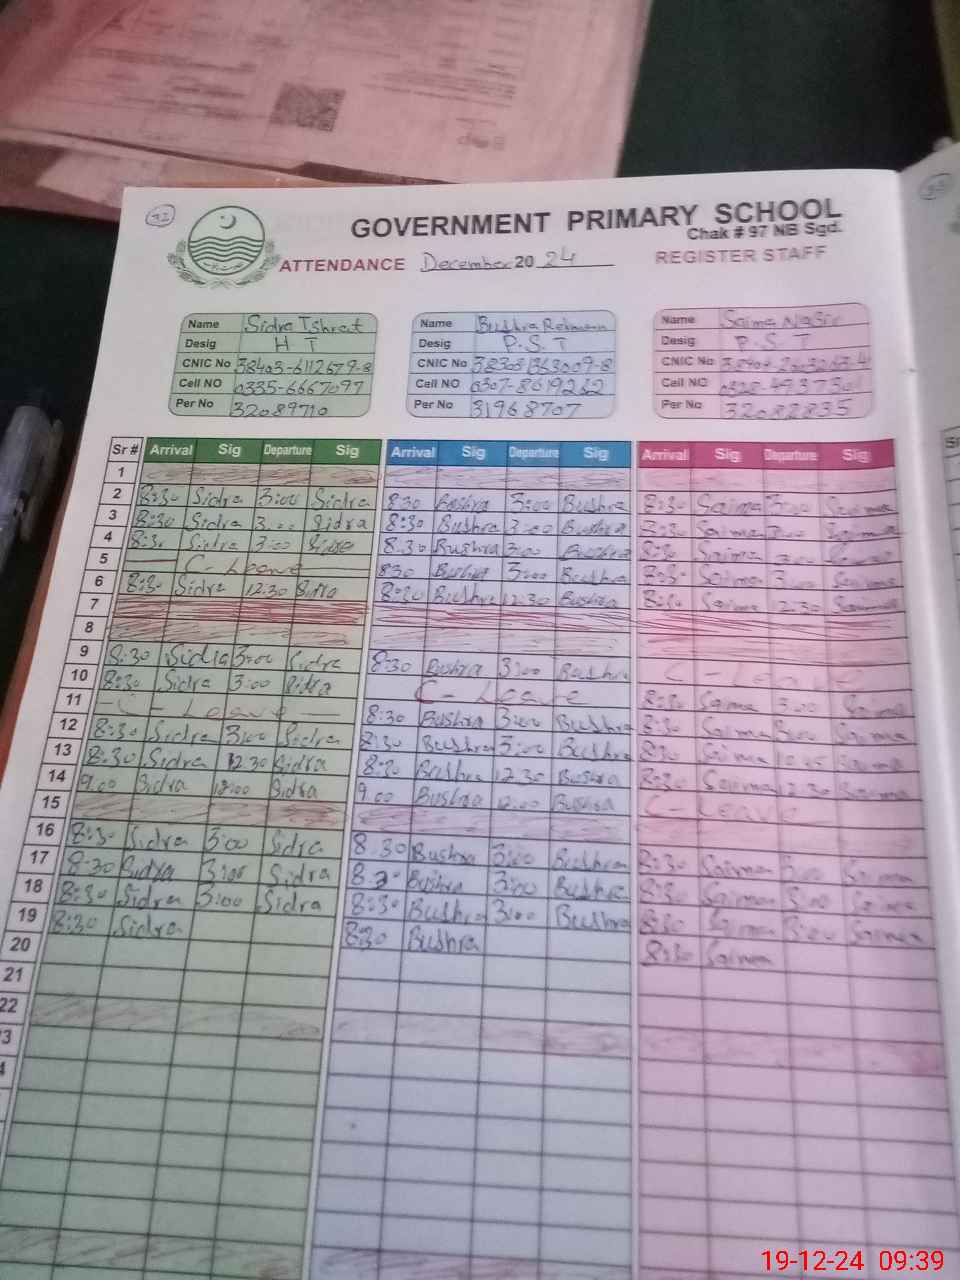 32
GOVERNMENT PRIMARY SCHOOL
Chak # 97 NB Sgd.
ATTENDANCE December 2024 REGISTER STAFF
Name Sidra Ishrat Name Bushra Rehman Name Saima Nasir
Desig H T Desig P.S.T Desig P.S.T
CNIC No CNIC No CNIC No
Cell NO 0335-6667097 Cell NO 0307-8619262 Cell NO
Per No 32089710 Per No 31968707 Per No 32082835
Sr # Arrival Sig Departure Sig Arrival Sig Departure Sig Arrival Sig Departure Sig
1
2 8:30 Sidra 3:00 Sidra 8:30 Bushra 3:00 Bushra 8:30 Saima 3:00 Saima
3 8:30 Sidra 3:00 Sidra 8:30 Bushra 3:00 Bushra 8:30 Saima 3:00 Saima
4 8:30 Sidra 3:00 Sidra 8:30 Bushra 3:00 Bushra 8:30 Saima 3:00 Saima
5 C-Leave 830 Bushra 3:00 Bushra 8:30 Saima 3:00 Saima
6 8:30 Sidra 12.30 Sidra 8:30 Bushra 12.30 Bushra 8:30 Saima 12.30 Saima
7
8
9 8:30 Sidra 3:00 Sidra 8:30 Bushra 3:00 Bushra C - Leave
10 8:30 Sidra 3:00 Sidra C - Leave 8:30 Saima 3:00 Saima
11 - C - Leave - 8:30 Bushra 3:00 Bushra 8:30 Saima 3:00 Saima
12 8:30 Sidra 3:00 Sidra 8:30 Bushra 3:00 Bushra 8:30 Saima 10.45 Saima
13 8:30 Sidra 12.30 Sidra 8:30 Bushra 12.30 Bushra 8:30 Saima 12.30 Saima
14 9.00 Sidra 12:00 Sidra 9.00 Bushra 12:00 Bushra C-Leave
15
16 8:30 Sidra 3:00 Sidra 8.30 Bushra 3:00 Bushra 8:30 Saima 3:00 Saima
17 8:30 Sidra 3:00 Sidra 8:30 Bushra 3:00 Bushra 8:30 Saima 3:00 Saima
18 8:30 Sidra 3:00 Sidra 8:30 Bushra 3:00 Bushra 8:30 Saima 3:00 Saima
19 8:30 Sidra 8:30 Bushra 8:30 Saima
20
21
22
19-12-24 09:39